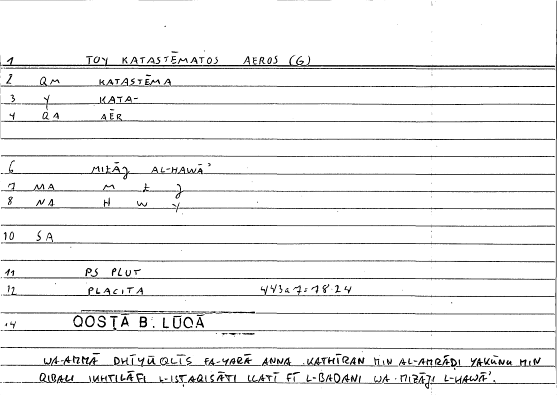 1 TOY KATASTĒMATOS AEROS (G)
2 QM KATASTĒMA
3 Y KATA-
4 QA AĒR
6 MIZĀJ AL-HAWĀʾ
7 MA M Z J
8 NA H W Y
10 SA
11 PS PLUT
12 PLACITA 443a7=18.24
.4 QOSṬĀ B. LŪQĀ
WA-AMMĀ DHIYŪQLĪS FA-YARĀ ANNA KATHĪRAN MIN AL-AMRĀḌI YAKŪNU MIN
QIBALI IKHTILĀFI L-ISṬAQISĀTI LLATĪ FĪ L-BADANI WA-MIZĀJI L-HAWĀʾ.